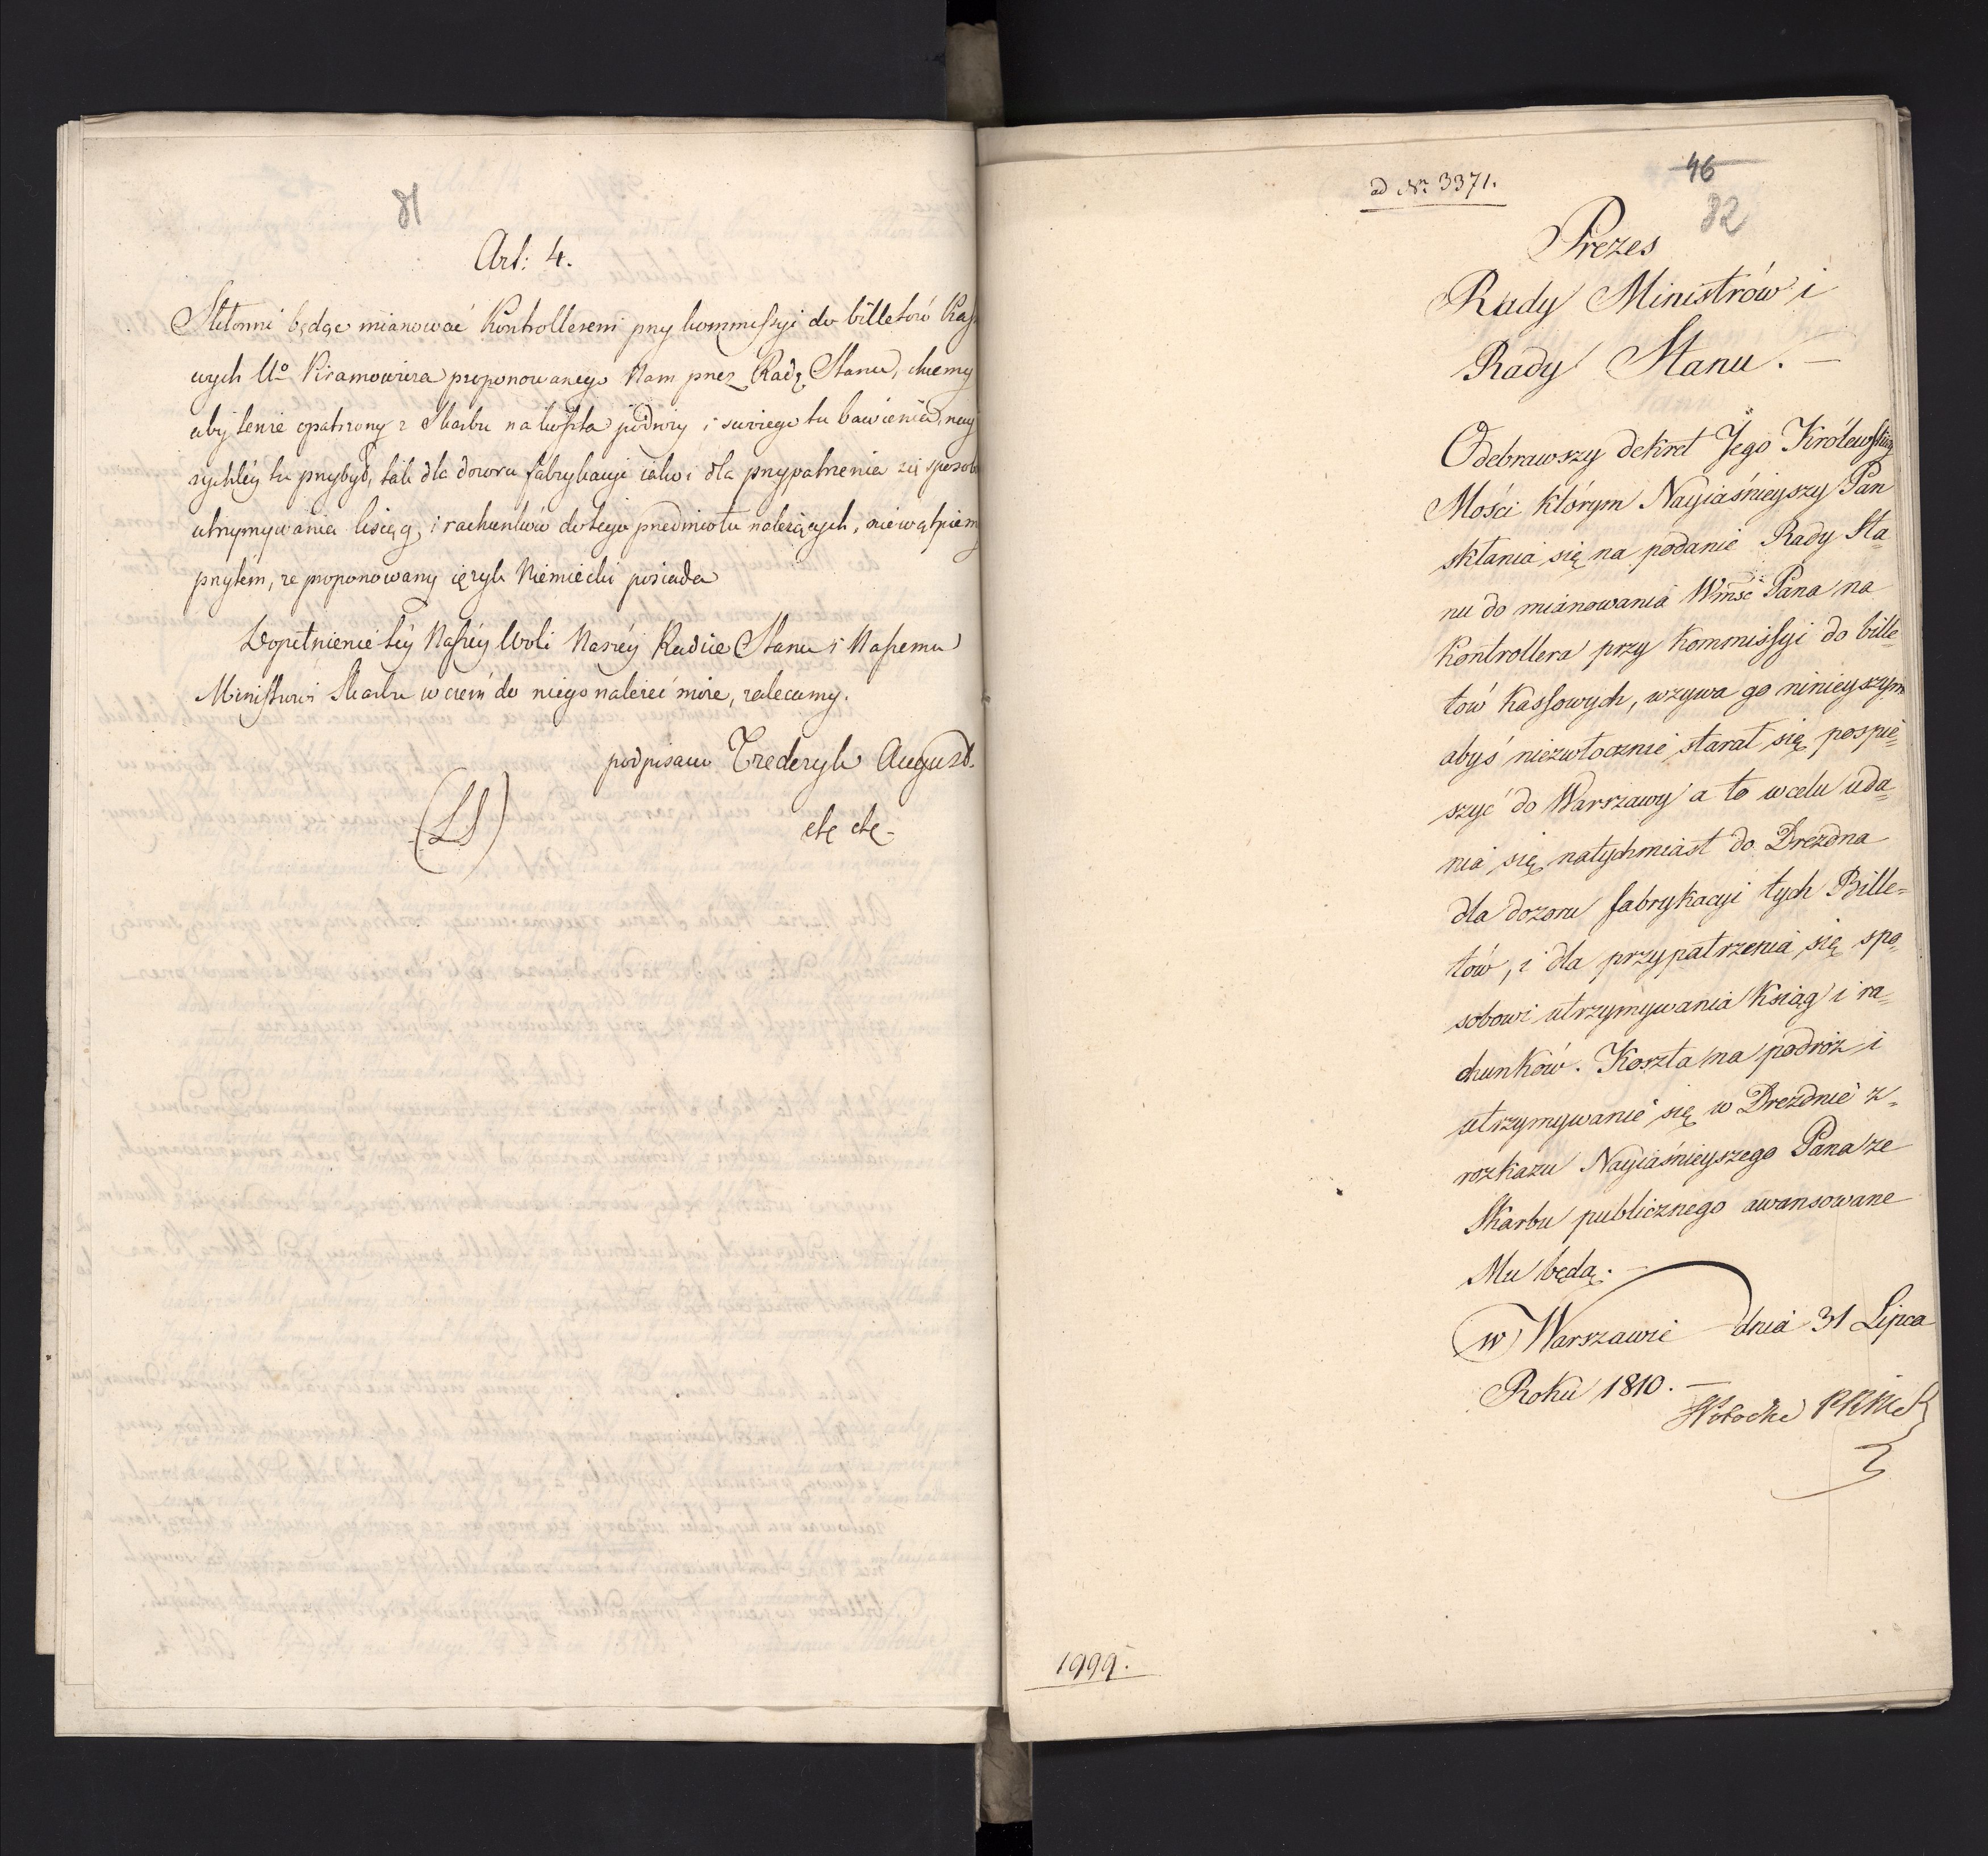 81
Art: 4.
Skłonni będąc mianować Kontrollerem przy kommissyi do billetów Kass
wych Uo Piramowicza proponowanego Nam przez Radę Stanu, chcemy
aby tenże opatrzony z Skarbu na koszta podroży i swoiego tu bawienia, nay
rychléy tu przybył, tak dla dozoru fabrykacyi iako i dla przypatrzenia się sposobo
utrzymywania ksiąg, i rachunków do tego przedmiotu należących, niewątpiem
przytém, ze proponowany ięzyk Niemiecki posiada
Dopełnienie téy Naszéy Woli Naszéy Radzie Stanu i Naszemu
Ministrowi Skarbu w czem do niego należeć może, zalecamy.
podpisano Fryderyk August.
(LS) etc etc.
ad Nr. 3371.
46
82
Prezes
Rady Ministrów i
Rady Stanu. —
Odebrawszy dekret Jego Królewskiey
Mości którym Nayiaśnieyszy Pan
skłania się na podanie Rady Sta=
nu do mianowania Wmść Pana na
Kontrollera przy Kommissyi do bille=
tów Kassowych, wzywa go ninieyszym
abyś niezwłocznie starał się pospie=
szyć do Warszawy a to w celu uda=
nia się natychmiast do Drezdna
dla dozoru fabrykacyi tych Bille=
tów, i dla przypatrzenia się spo=
sobowi utrzymywania Ksiąg i ra=
chunków. Koszta na podróż i
utrzymywanie się w Dreźdnie z=
rozkazu Nayiaśnieyszego Pana ze
Skarbu publicznego awansowane
Mu będą. —
w Warszawie dnia 31 Lipca
Roku 1810. —
1999.